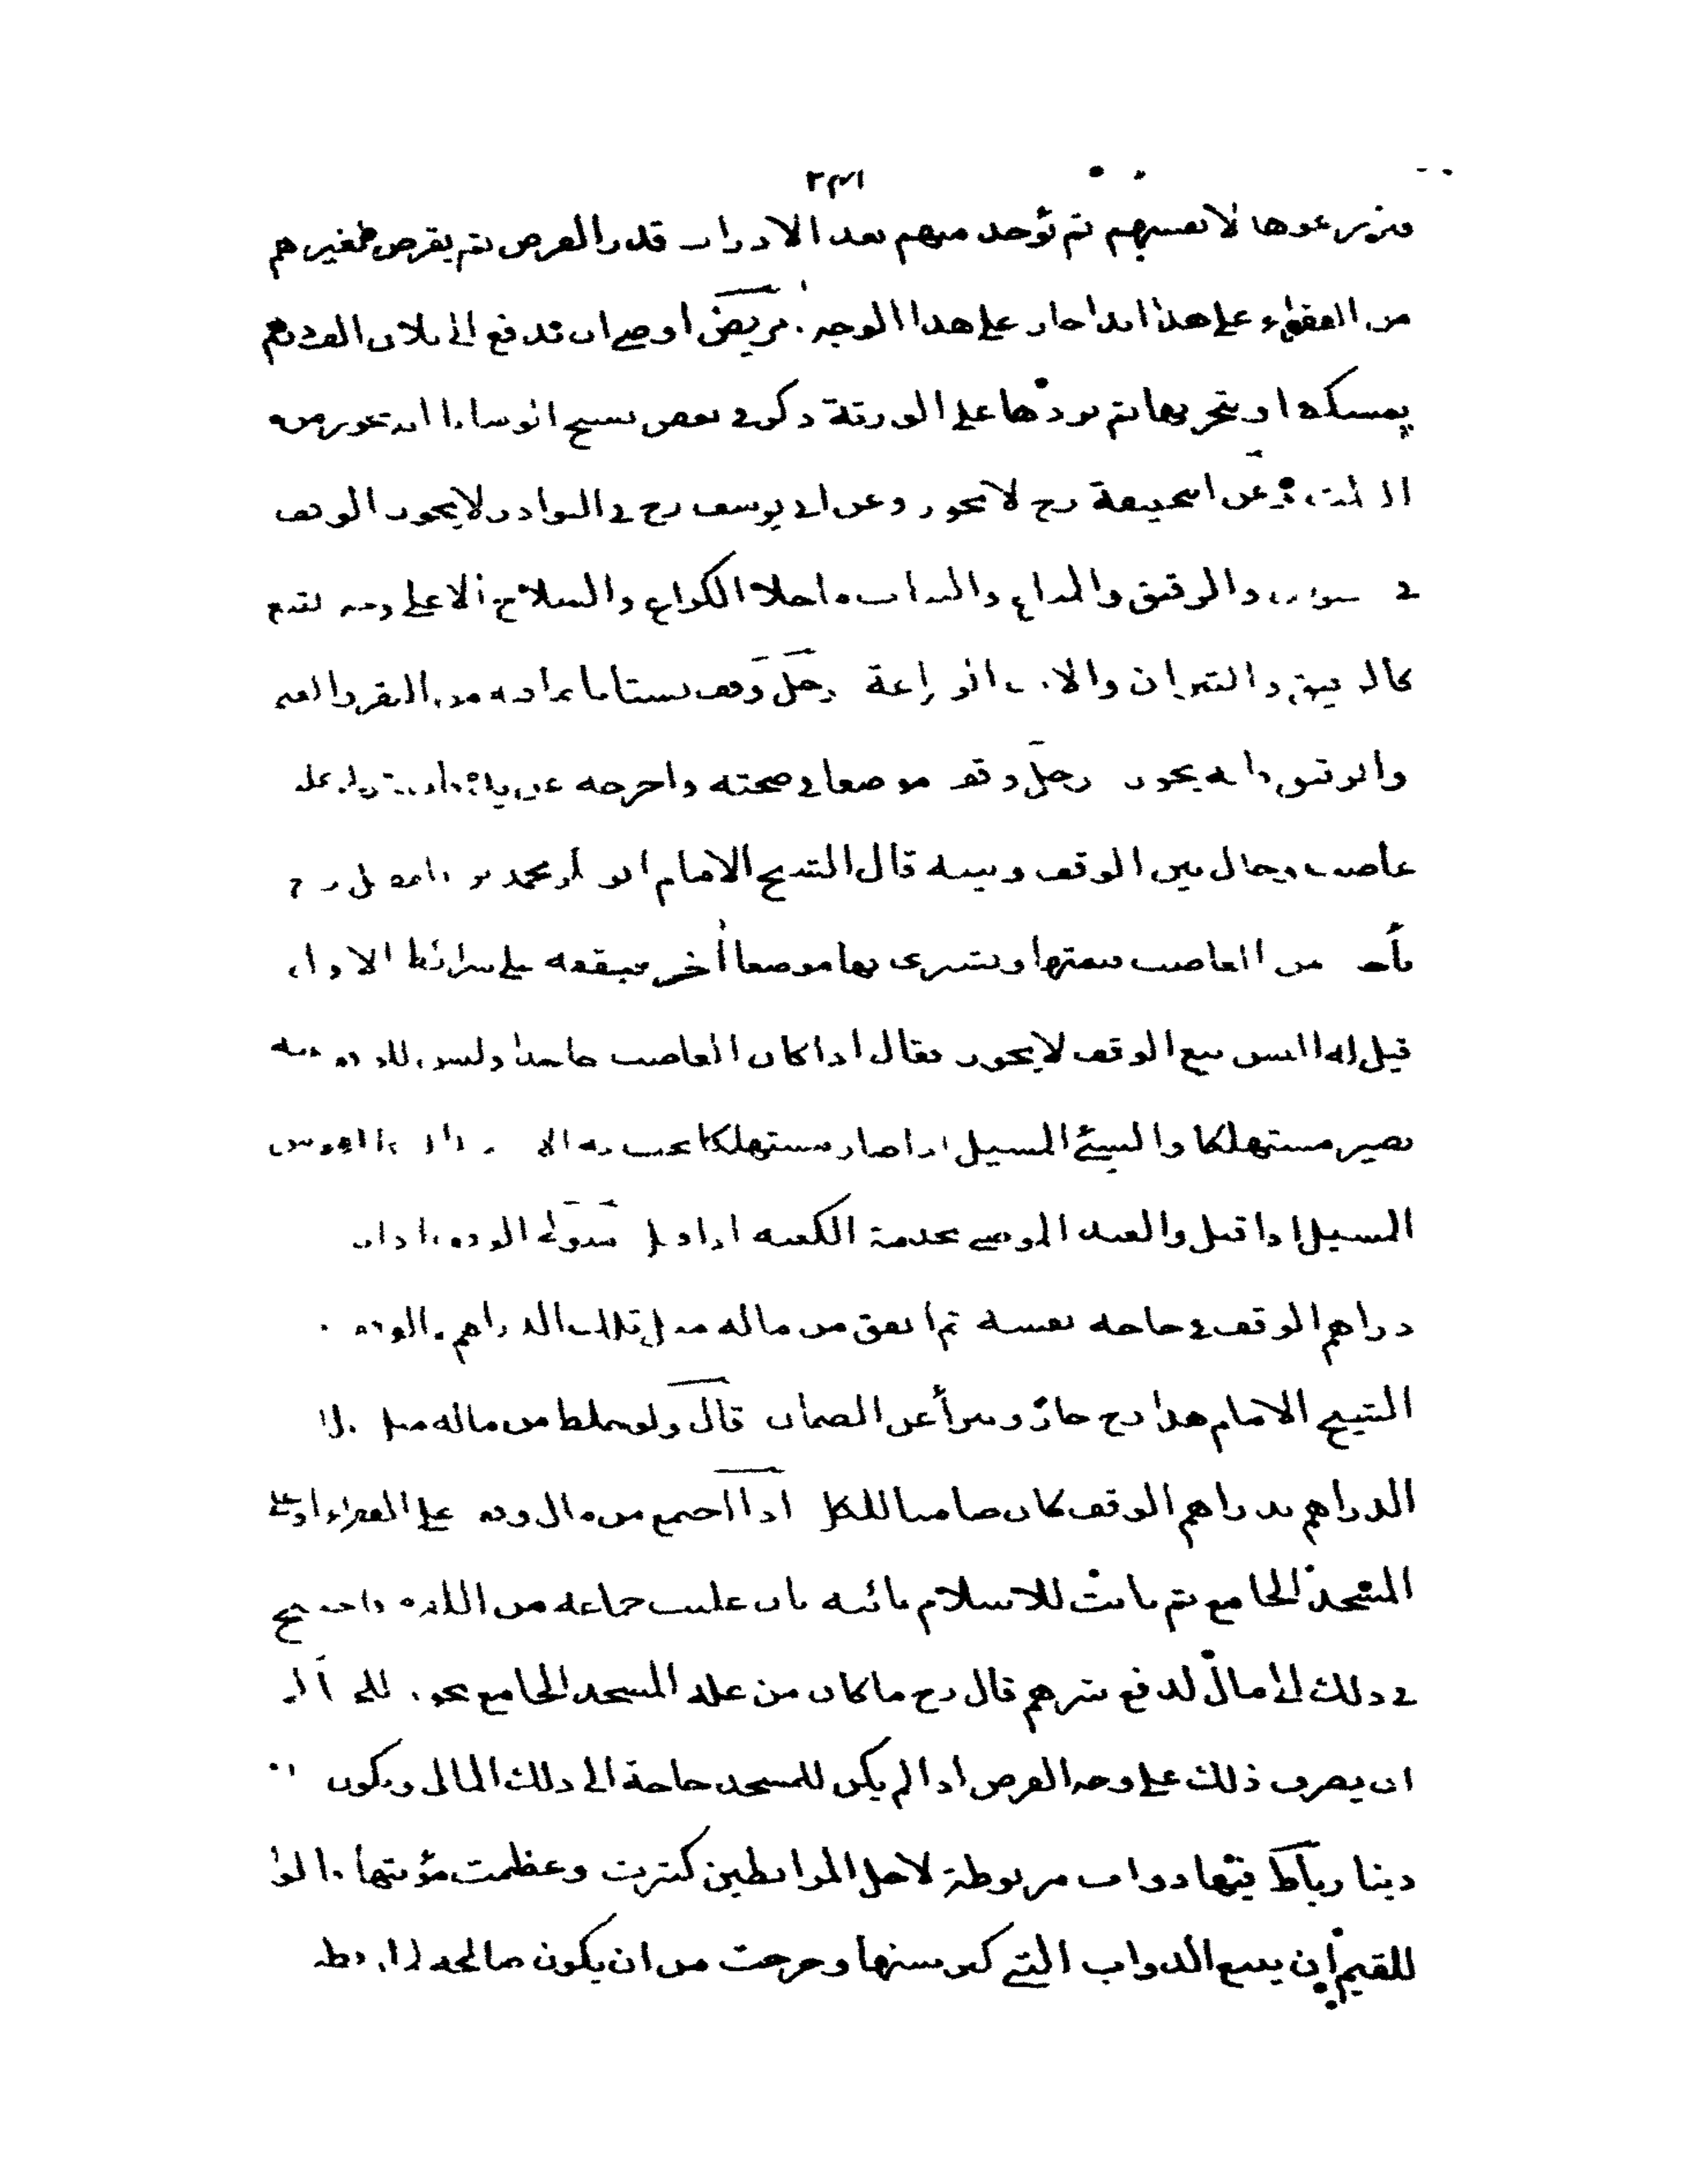 ٢٣١
فيزرعوها لانفسهم ثم تؤخذ منهم بعد الادراك قدر القرض ثم يقرض لغيرهم
من الفقراء على هذا ابدا جاز على هذا الوجه مريض اوصى ان تدفع الى فلان الف درهم
يمسكها ويتجر بها ثم يردها على الورثة ذكر في بعض نسخ الوصايا انه تجوز من
الثلث وعن ابي حنيفة رح لا يجوز وعن ابي يوسف رح في النوادر لا يجوز الوقف
في الحيوان والرقيق والمتاع والثياب ما خلا الكراع والسلاح الا على وجه التبع
كالرقيق والثيران والآلات الزراعة رجل وقف بستانا بما فيه من البقر والغنم
والرقيق فانه يجوز رجل وقف موضعا في صحته واخرجه عن يده فاستولى عليه
غاصب وحال بين الوقف وبينه قال الشيخ الامام ابو بكر محمد بن الفضل رح
يأخذ من الغاصب قيمتها ويشترى بها موضعا أخر فيقفه على شرائط الاول
قيل له اليس بيع الوقف لا يجوز فقال اذا كان الغاصب جاحدا وليس للوقف بينة
يصير مستهلكا والشئ المسبل اذا صار مستهلكا يجب به الاستبدال كالفرس
المسبل اذا قتل والعبد الموصى بخدمة الكعبة اذا قتل متولى الوقف اذا انفق
دراهم الوقف في حاجة نفسه ثم انفق من ماله مثل تلك الدراهم في الوقف
الشيخ الامام هذا رح جاز ويبرأ عن الضمان قال ولو خلط من ماله مثل تلك
الدراهم بدراهم الوقف كان ضامنا للكل اذا اجتمع من مال وقف على الفقراء او على
المسجد الجامع ثم نابت للاسلام نائبة بان غلب جماعة من الكفرة واحتيج
في ذلك الى مال لدفع شرهم قال رح ما كان من غلة المسجد الجامع يجوز للحاكم
ان يصرف ذلك على وجه القرض اذا لم يكن للمسجد حاجة الى ذلك المال ويكون
دينا رباط فيها دواب مربوطة لاجل المرابطين كثرت وعظمت مؤنتها قالوا
للقيم ان يبيع الدواب التي كبر سنها وخرجت من ان يكون صالحة للرابطة